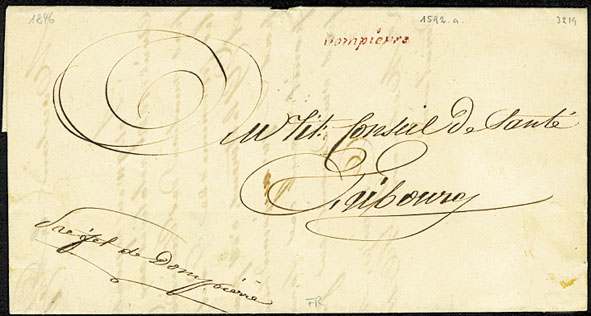 1846 1592.a. 3219
Dompierre
Au Tit: Conseil de Santé
Fribourg
Préfet de Dompierre
FR